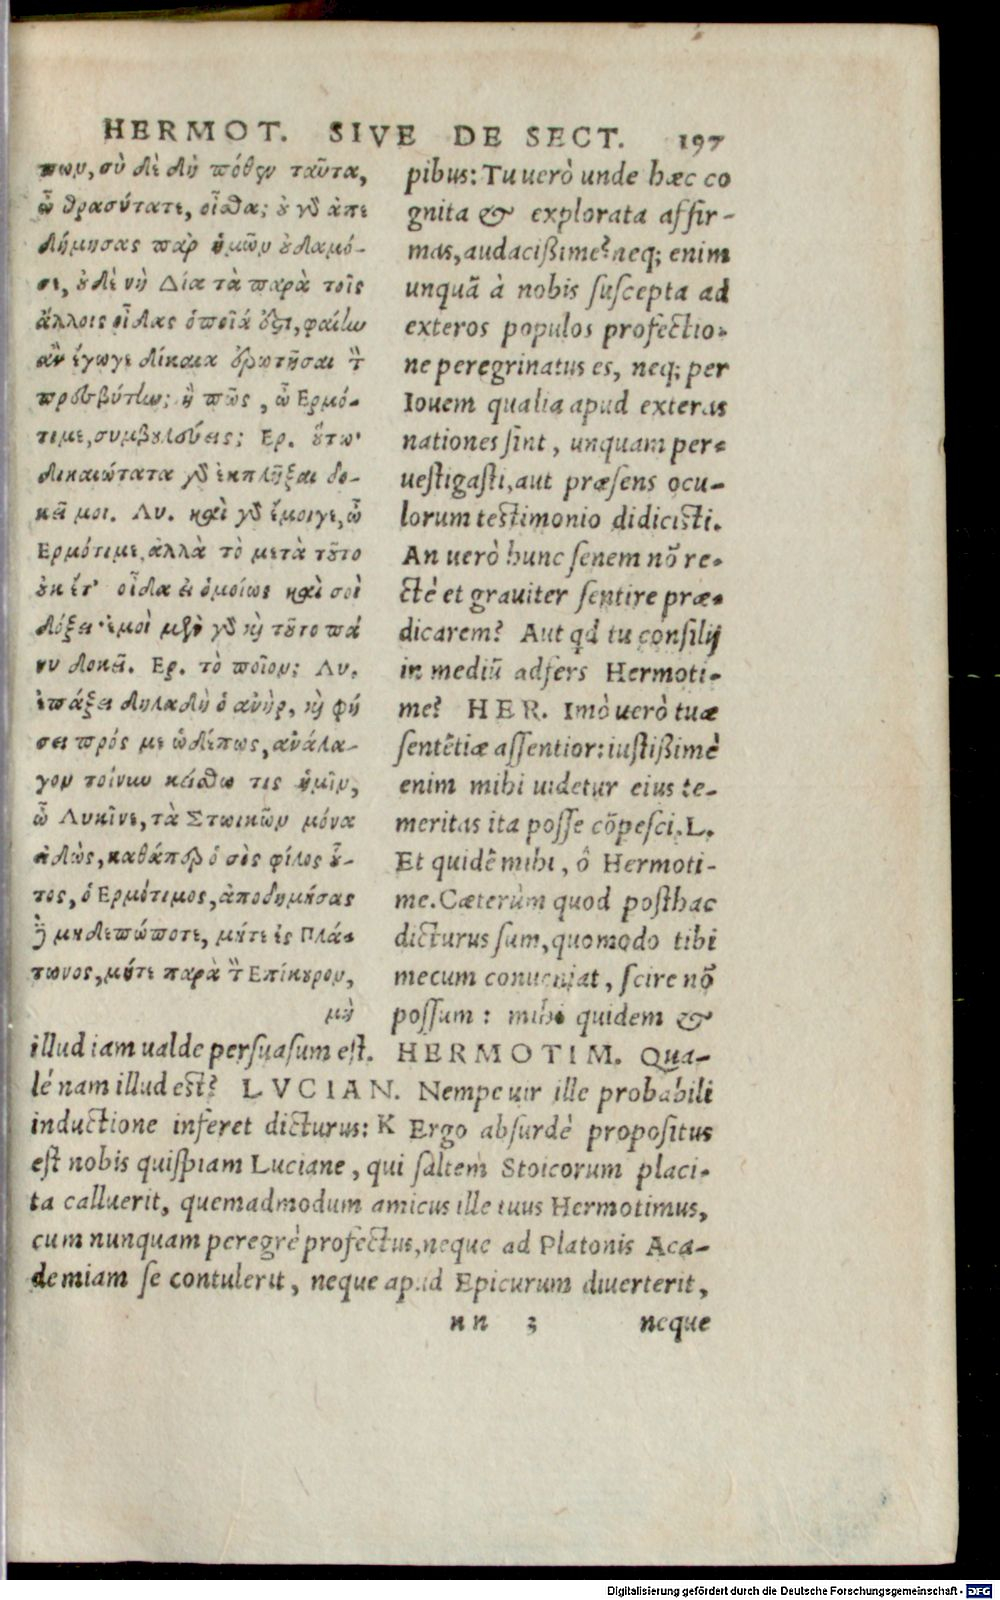 HERMOT. SIVE DE SECT. 197
πων, σὺ δὲ δὴ πόθεν ταῦτα,
ὦ θρασύτατε, οἶσθα; ὀ γὰρ ἀπε
δήμησας παρ ἡμῶν ὀδαμό-
σε, ὀδὲ νὴ Δία τὰ παρὰ τοῖς
ἄλλοις οἶδας ὁποῖά ὄζι, φαίlω
ἂν ἔγωγε δίκαια ἐρωτῆσαι τ
πρεσβύτlω; ἢ πῶς, ὦ Ερμό-
τιμε, συμβυλεύεις; Ερ. ὅτω·
δικαιότατα γὰρ ἐκπλῆξαι δο-
κεῖ μοι. Λυ. καὶ γὰρ ἔμοιγε, ὦ
Ερμότιμε, ἀλλὰ τὸ μετὰ τῦτο
ὀκ ἔτ' οἶδα εἰ ὁμοίως καὶ σοὶ
δόξει· ἐμοὶ μὲν γὰρ κὶ τῦτο πά
νυ δοκεῖ. Ερ. τὸ ποῖον; Λυ.
ἐπάξει δηλαδὴ ὁ ἀνὴρ, κὶ φή
σει πρός με ὡδέπως, ἀνάλο-
γον τοίνυν κείσθω τις ἡμῖν,
ὦ Λυκῖνε, τὰ Στωικῶν μόνα
εἰδὼς, καθάπερ ὁ σὸς φίλος ὗ-
τος, ὁ Ερμότιμος, ἀποδημήσας
ἢ μηδεπώποτε, μήτε ἐς Πλά-
τωνος, μήτε παρὰ τ Επίκυρον,
μὴ
pibus: Tu uerò unde hæc co
gnita & explorata affir-
mas, audacißime? neq; enim
unquã à nobis suscepta ad
exteros populos profectio-
ne peregrinatus es, neq; per
Iouem qualia apud exteras
nationes sint, unquam per-
uestigasti, aut præsens ocu-
lorum testimonio didicisti.
An uerò hunc senem nõ re-
ctè et grauiter sentire præ-
dicarem? Aut qd tu consilij
in mediũ adfers Hermoti-
me? HER. Imò uerò tuæ
sentẽtiæ assentior: iustißimè
enim mihi uidetur eius te-
meritas ita posse cõpesci. L.
Et quidẽ mihi, ô Hermoti-
me. Cæterùm quod posthac
dicturus sum, quomodo tibi
mecum conueniat, scire nõ
possum: mihi quidem &
illud iam ualde persuasum est. HERMOTIM. Qua-
lé nam illud est? LVCIAN. Nempe uir ille probabili
inductione inferet dicturus: K Ergo absurdè propositus
est nobis quispiam Luciane, qui saltem Stoicorum placi-
ta calluerit, quemadmodum amicus ille tuus Hermotimus,
cum nunquam peregrè profectus, neque ad Platonis Aca-
demiam se contulerit, neque apud Epicurum diuerterit,
nn 3 neque
Digitalisierung gefördert durch die Deutsche Forschungsgemeinschaft - DFG